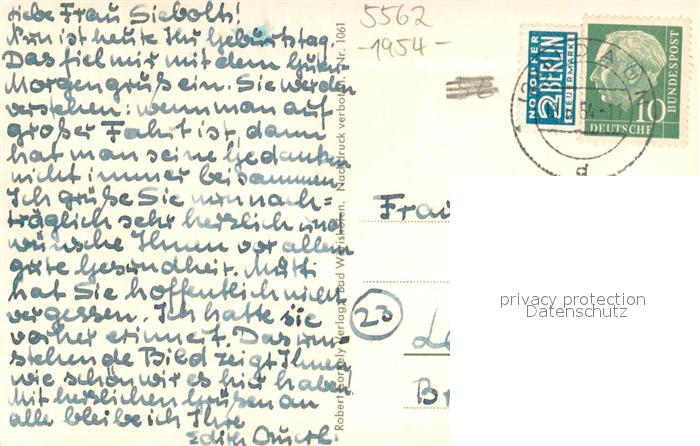 Liebe Frau Siebolts!
Nun ist heute Ihr Geburtstag.
Das fiel mir mit dem Guten-
Morgengruß ein. Sie werden
verstehen: wenn man auf
großer Fahrt ist, dann
hat man seine Gedanken
nicht immer beisammen.
Ich grüße Sie nun nach-
träglich sehr herzlich und
wünsche Ihnen vor allem
gute Gesundheit. Mutti
hat Sie hoffentlich nicht
vergessen. Ich hatte sie
vorher erinnert. Das
stehende Bild zeigt Ihnen
wie schön wir es hier haben!
Mit herzlichen Grüßen an
alle bleibe ich Ihre
Edith
Robert Verlag, Bad Wörishofen. Nachdruck verboten. Nr. 1061
5562
-1954-
NOTOPFER
2 BERLIN
STEUERMARKE
10
DEUTSCHE
BUNDESPOST
Frau
23
privacy protection
Datenschutz